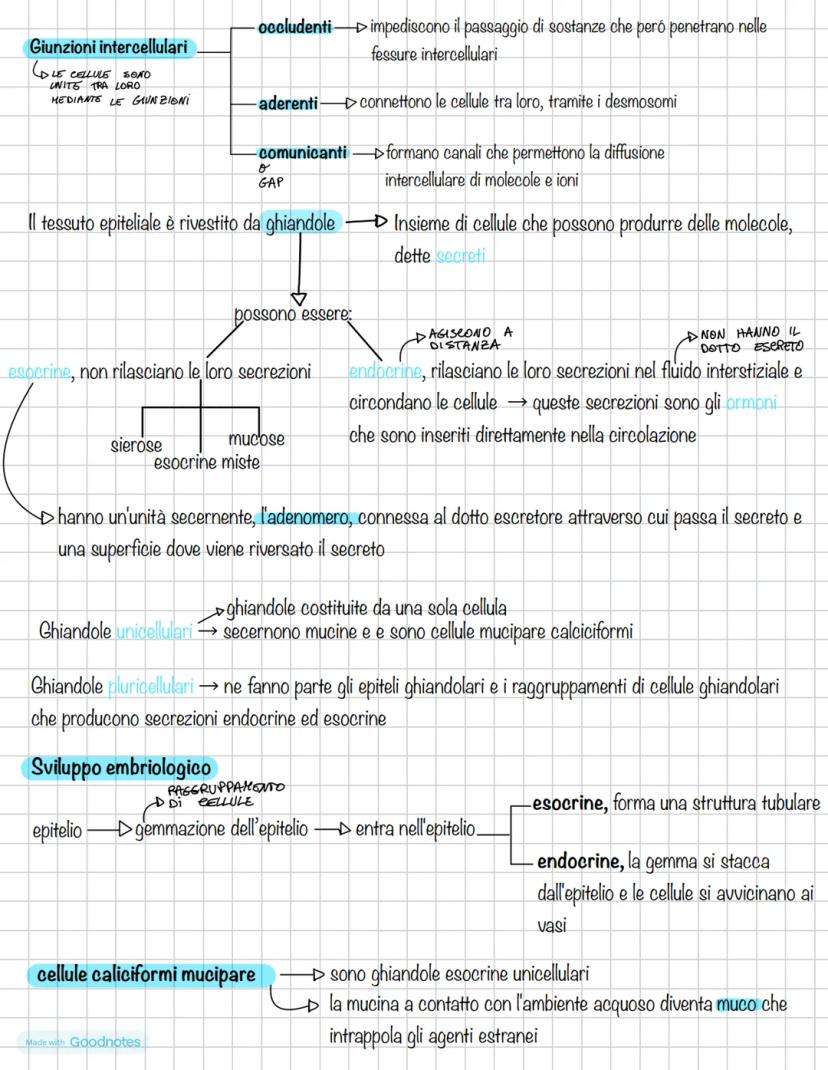 Giunzioni intercellulari
LE CELLULE SONO
UNITE TRA LORO
MEDIANTE LE GIUNZIONI
occludenti impediscono il passaggio di sostanze che peró penetrano nelle
fessure intercellulari
aderenti connettono le cellule tra loro, tramite i desmosomi
comunicanti formano canali che permettono la diffusione
o
GAP
intercellulare di molecole e ioni
Il tessuto epiteliale è rivestito da ghiandole Insieme di cellule che possono produrre delle molecole,
dette secreti
possono essere:
AGISCONO A
DISTANZA
NON HANNO IL
DOTTO ESCRETO
esocrine, non rilasciano le loro secrezioni
sierose
mucose
esocrine miste
endocrine, rilasciano le loro secrezioni nel fluido interstiziale e
circondano le cellule → queste secrezioni sono gli ormoni
che sono inseriti direttamente nella circolazione
hanno un'unità secernente, l'adenomero, connessa al dotto escretore attraverso cui passa il secreto e
una superficie dove viene riversato il secreto
ghiandole costituite da una sola cellula
Ghiandole unicellulari → secernono mucine e e sono cellule mucipare calciciformi
Ghiandole pluricellulari → ne fanno parte gli epiteli ghiandolari e i raggruppamenti di cellule ghiandolari
che producono secrezioni endocrine ed esocrine
Sviluppo embriologico
RAGGRUPPAMENTO
DI CELLULE
epitelio gemmazione dell'epitelio entra nell'epitelio
esocrine, forma una struttura tubulare
endocrine, la gemma si stacca
dall'epitelio e le cellule si avvicinano ai
vasi
cellule caliciformi mucipare sono ghiandole esocrine unicellulari
la mucina a contatto con l'ambiente acquoso diventa muco che
intrappola gli agenti estranei
Made with Goodnotes